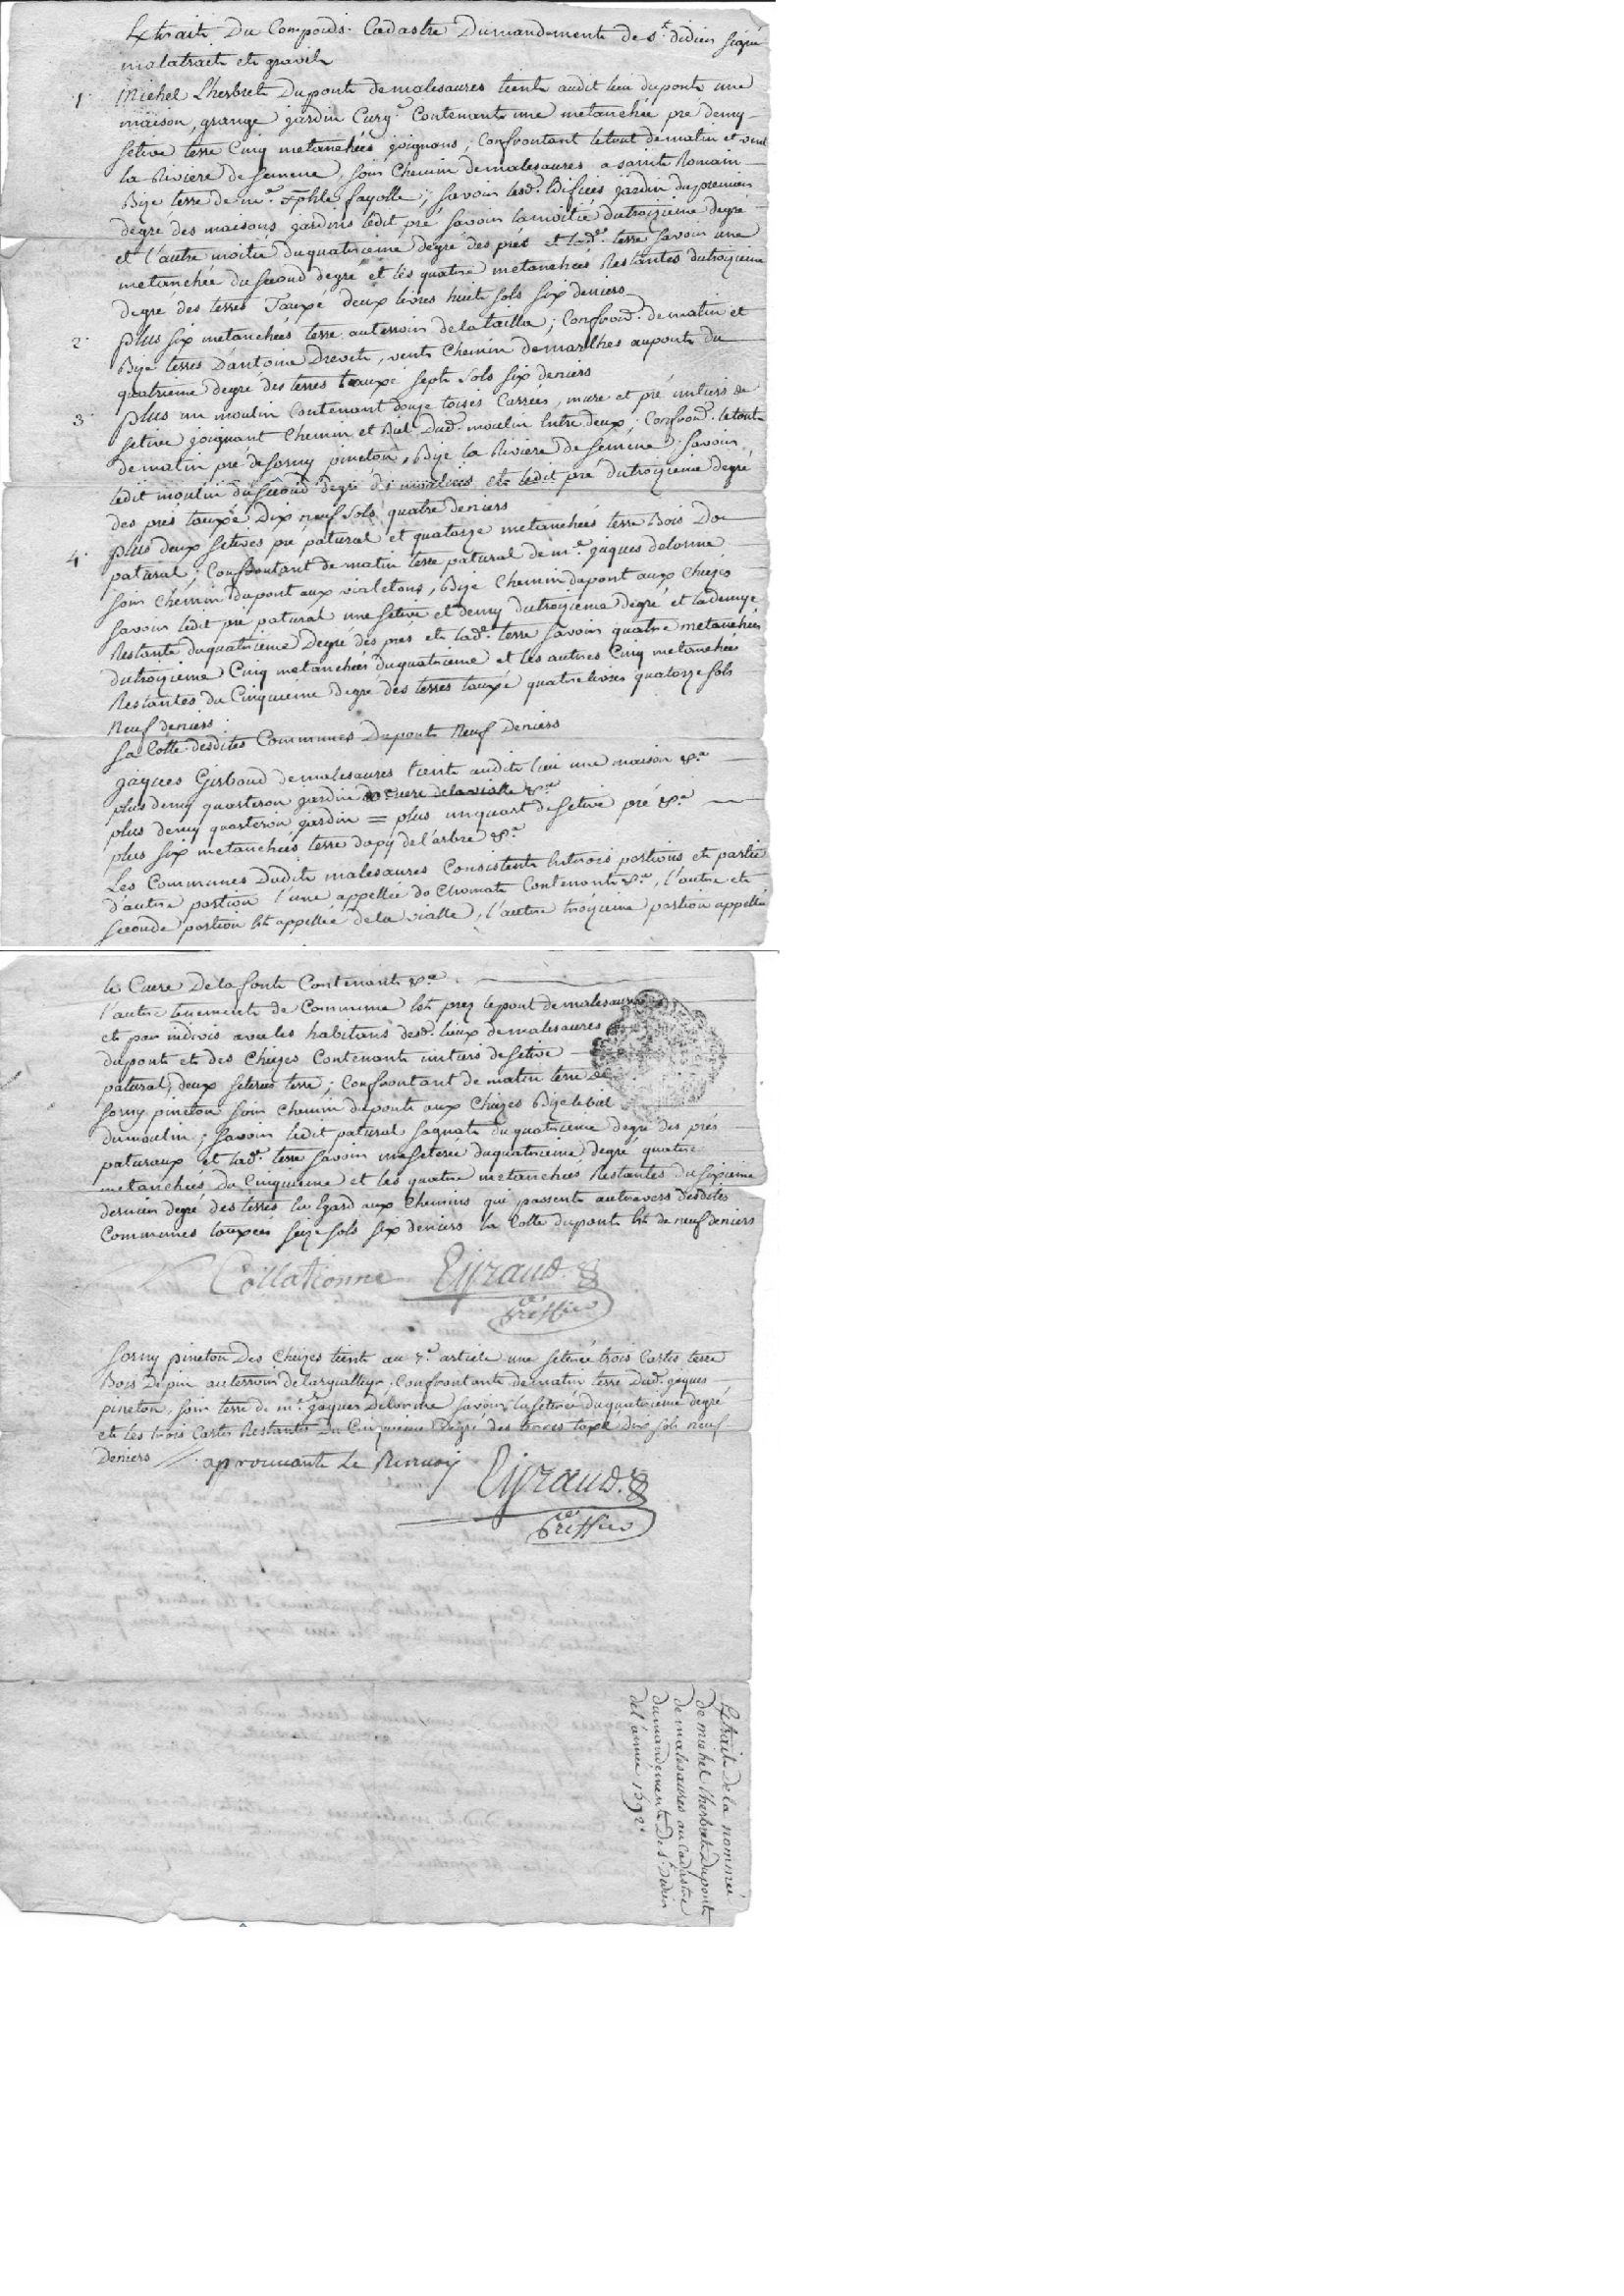 Extrait Du Compoids Cadastre Dumandement de st. didier
malatrait et
1. Michel Lherbret Dupont demalesaures tient audit lieu dupont une
maison, grange jardin Contenant une metanchée pré demy
setive terre Cinq metanchées joignons; Confrontant letout dematin et vent
la Riviere de semene, soir Chemin demalesaures a saint Romain
Bize terre de mre. fayolle; savoir lesd. Edifices jardin dupremier
degré des maisons jardins ledit pré savoir lamoitié dutroizieme degré
et l'autre moitié duquatrieme degré des prés et lade. terre savoir une
metanchée du second degré et les quatre metanchées Restantes dutroizieme
degré des terres Tauxé deux livres huit sols six deniers
2. plus six metanchées terre auterroir de la ; Confrond. dematin et
Bize terres D'antoine Drevet, vent Chemin demarlhes aupont du
quatrieme degré des terres tauxé sept sols six deniers
3. plus un moulin Contenant douze toises Carrées, et pré untiers de
setive joignant Chemin et Bial Dud. moulin Entre deux; Confrond. letout
dematin pré de sorny pineton, Bize la Riviere de semene; savoir
ledit moulin du second degré des moulins et ledit pré dutroizieme degré
des prés tauxé Dix neuf sols quatre deniers
4. plus deux setives pré patural et quatorze metanchées terre Bois
patural; Confrontant dematin terre patural de mre. jaques delorme
soir Chemin dupont aux violetons, Bize Chemin dupont aux Cheizes
savoir ledit pré patural une setive et demy dutroizieme degré et lademye
Restante duquatrieme Degré des prés et lade. terre savoir quatre metanchées
dutroizieme Cinq metanchées duquatrieme et les autres Cinq metanchées
Restantes du Cinquieme degré des terres tauxé quatre livres quatorze sols
Neuf deniers
sa Cotte desdites Communes Dupont Neuf deniers
jaques Gisbaud demalesaures tient audit lieu une maison &a
plus demy quarteron jardin delavialle &a
plus demy quarteron jardin = plus unquart desetive pré &a
plus six metanchées terre de l'arbre &a
Les Communes Dudit malesaures Consistent Entrois portions et partie
d'autre portion l'une appellée do Chomat Contenant &a, l'autre et
seconde portion Est appellée de la vialle, l'autre troizieme portion appellée
le Cuere De la font Contenant &a
l'autre tenement de Commune Est prez le pont demalesaures
et par indivis avec les habitans desd. lieux demalesaures
dupont et des Cheizes Contenant untiers desetive
patural, deux seterées terre; Confrontant dematin terre de
sorny pineton soir Chemin dupont aux Cheizes Bize lebial
dumoulin; savoir ledit patural sagnat duquatrieme degré des prés
paturaux et lade. terre savoir uneseterée duquatrieme degré quatre
metanchées du Cinquieme et les quatre metanchées Restantes dusixieme
dernier degré des terres Eu Egard aux Chemins qui passent autravers desdites
Communes tauxées seize sols six deniers la Cotte dupont Est de neuf deniers
Collationné Eyraud
Greffier
sorny pineton Des Cheizes tient au 7e. article une seterée trois Cartes terre
Bois Depin auterroir de ; Confrontant dematin terre Dud. jaques
pineton, soir terre de mre. jaques Delorme savoir la seterée duquatrieme degré
et les trois Cartes Restantes Du Cinquieme Degré des terres taxé dix sols neuf
Deniers // aprouvant Le Renvoy Eyraud
Greffier
Extrait de la nommée
de michel lherbret Dupont
de malesaures au Cadastre
dumandement De st. Didier
del'année 1692.